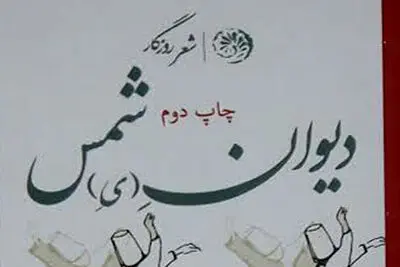 شعر روزگار
چاپ دوم
دیوانِ (ی) شمس